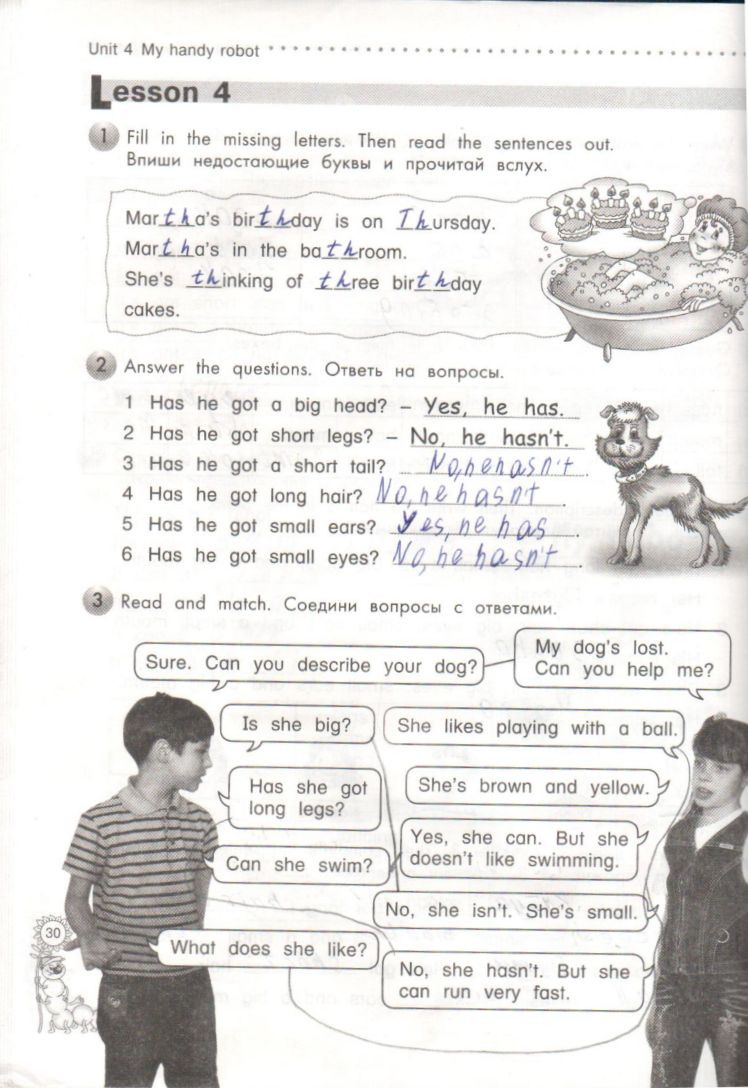 Unit 4 My handy robot
Lesson 4
1 Fill in the missing letters. Then read the sentences out.
Впиши недостающие буквы и прочитай вслух.
Martha's birthday is on Thursday.
Martha's in the bathroom.
She's thinking of three birthday
cakes.
2 Answer the questions. Ответь на вопросы.
1 Has he got a big head? – Yes, he has.
2 Has he got short legs? – No, he hasn't.
3 Has he got a short tail? No, he hasn't.
4 Has he got long hair? No, he hasn't.
5 Has he got small ears? Yes, he has.
6 Has he got small eyes? No, he hasn't.
3 Read and match. Соедини вопросы с ответами.
My dog's lost.
Can you help me?
Sure. Can you describe your dog?
Is she big?
She likes playing with a ball.
Has she got
long legs?
She's brown and yellow.
Yes, she can. But she
doesn't like swimming.
Can she swim?
No, she isn't. She's small.
What does she like?
No, she hasn't. But she
can run very fast.
30